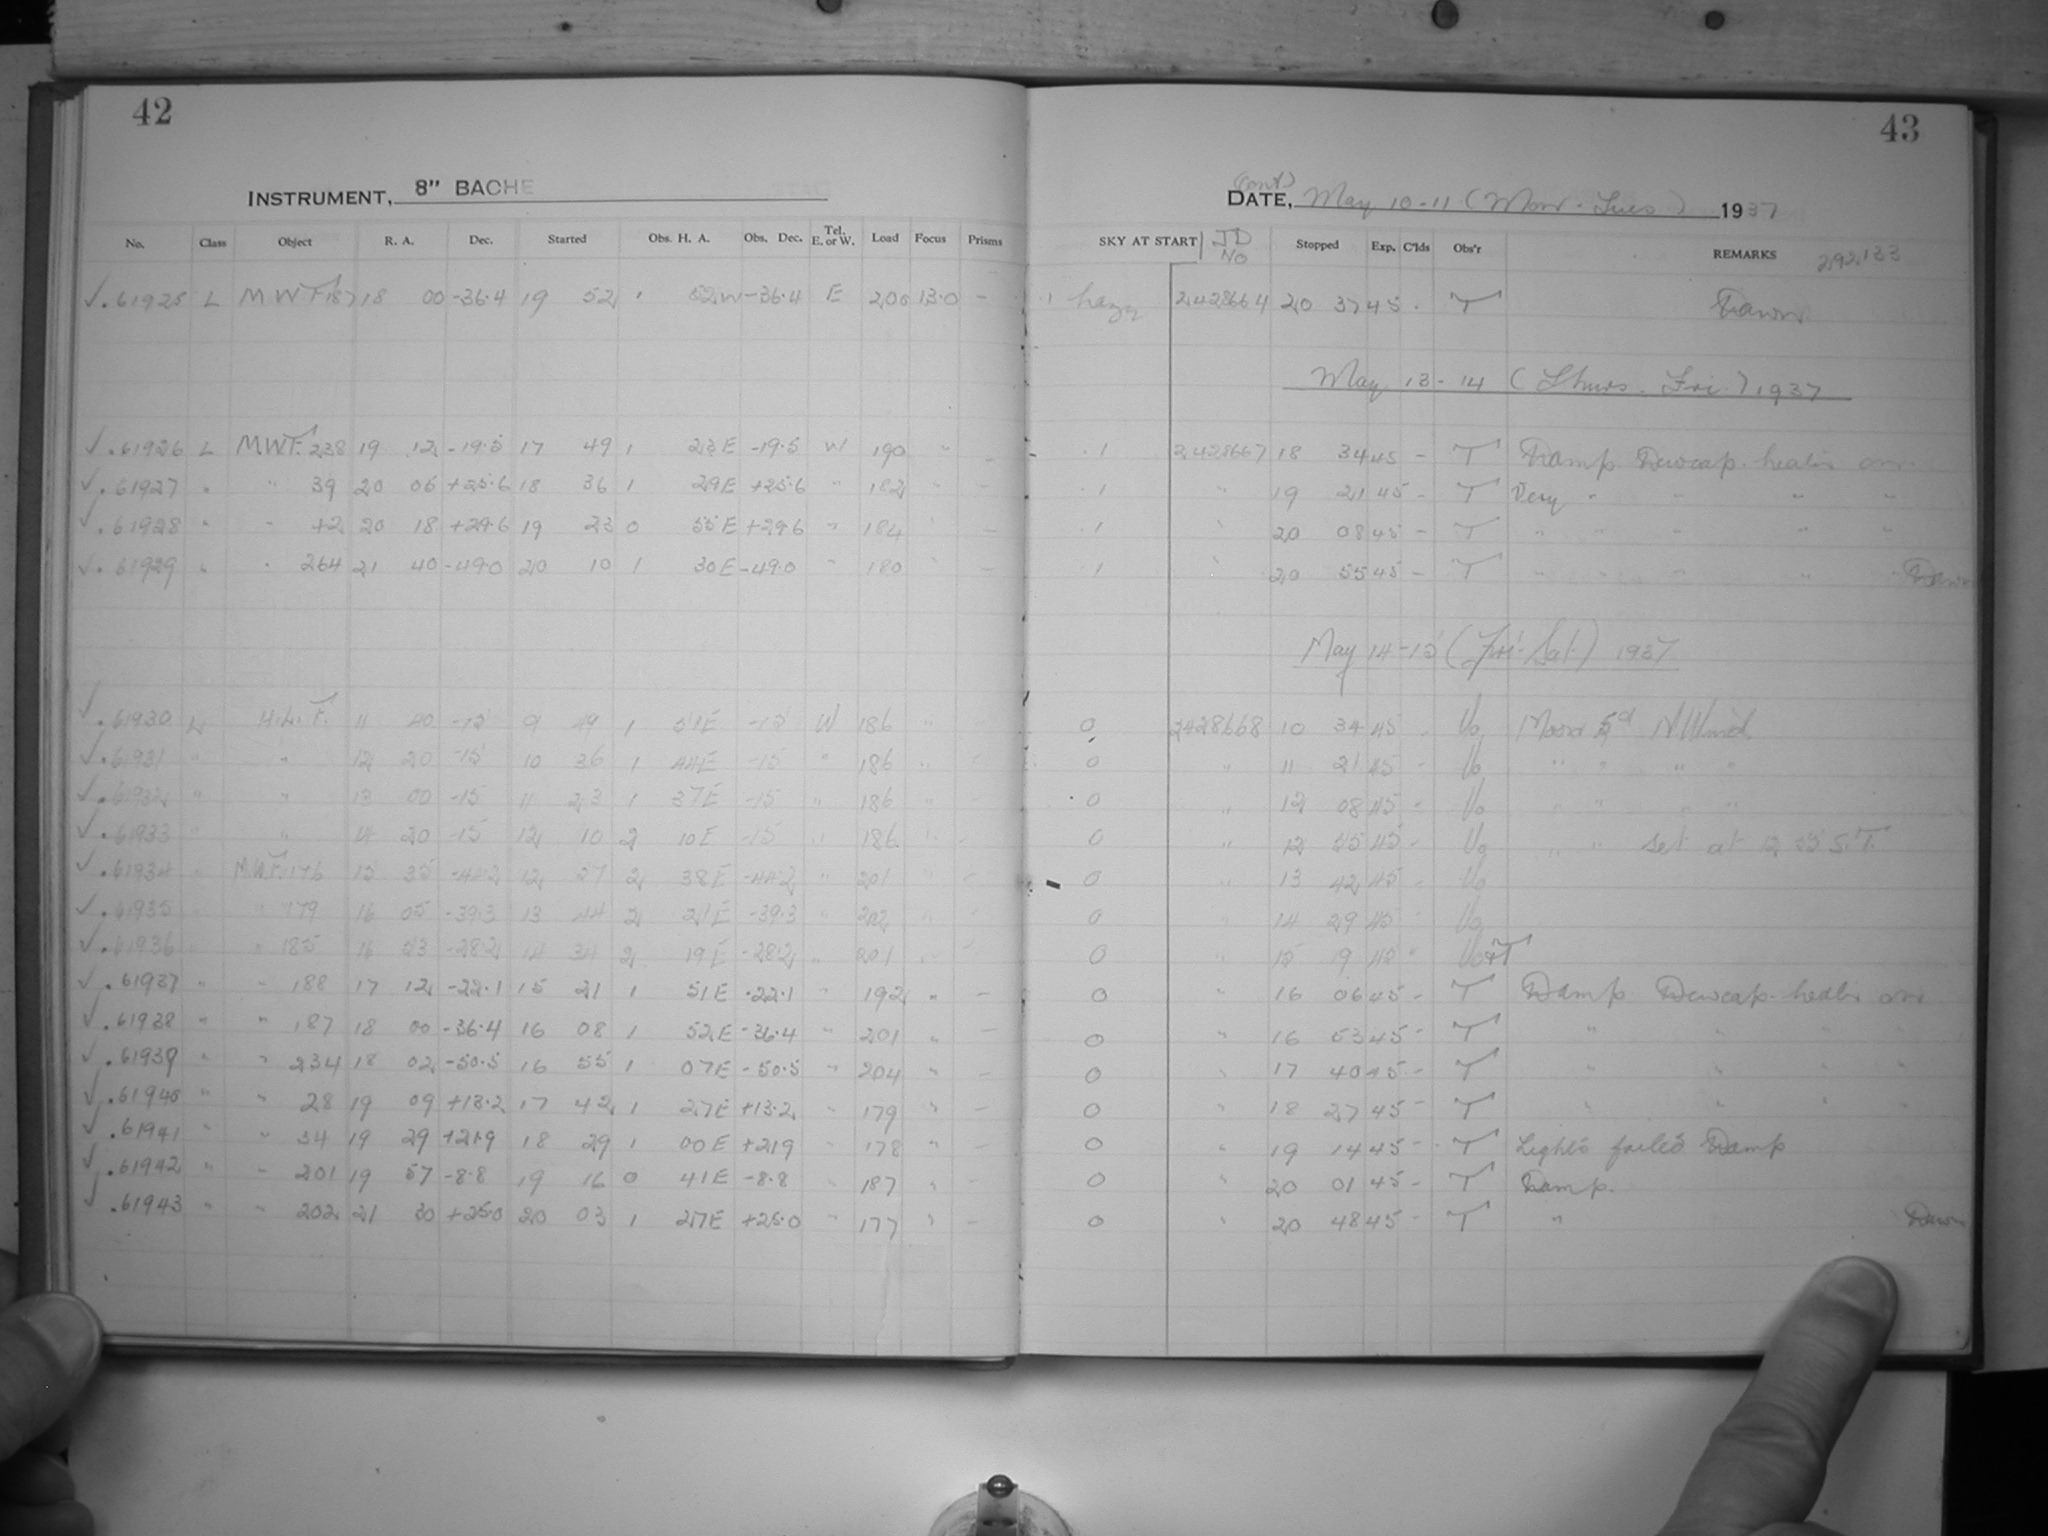 42
INSTRUMENT, 8" BACHE
No. Class Object R. A. Dec. Started Obs. H. A. Obs. Dec. Tel. E. or W. Load Focus Prisms
✓.61925 L MWF187 18 00 -36.4 19 52 1 52W -36.4 E 200 13.0 -
✓.61926 L MWF.238 19 12 -19.5 17 49 1 23E -19.5 W 190 " -
✓.61927 " " 39 20 05 +25.6 18 36 1 29E +25.6 " 182 " -
✓.61928 " " 42 20 18 +29.6 19 23 0 55E +29.6 " 184 " -
✓.61929 " " 264 21 40 -49.0 20 10 1 30E -49.0 " 180 " -
✓.61930 L H.L.F. 11 40 -15 9 49 1 51E -15 W 186 "
✓.61931 " " 12 20 -15 10 36 1 44E -15 " 186 " -
✓.61932 " " 13 00 -15 11 23 1 37E -15 " 186 " -
✓.61933 " " 14 20 -15 12 10 2 10E -15 " 186 " -
✓.61934 " MWF.176 15 35 -44.2 12 57 2 38E -44.2 " 201 " -
✓.61935 " " 179 16 05 -39.3 13 44 2 21E -39.3 " 202 " -
✓.61936 " " 185 16 53 -28.2 14 34 2 19E -28.2 " 201 " -
✓.61937 " " 188 17 12 -22.1 15 21 1 51E -22.1 " 192 " -
✓.61938 " " 187 18 00 -36.4 16 08 1 52E -36.4 " 201 " -
✓.61939 " " 234 18 02 -50.5 16 55 1 07E -50.5 " 204 " -
✓.61940 " " 28 19 09 +13.2 17 42 1 27E +13.2 " 179 " -
✓.61941 " " 34 19 29 +21.9 18 29 1 00E +21.9 " 178 " -
✓.61942 " " 201 19 57 -8.8 19 16 0 41E -8.8 " 187 " -
✓.61943 " " 202 21 30 +25.0 20 03 1 27E +25.0 " 177 " -
43
(Cont)
DATE, May 10-11 (Mon - Tues) 1937
SKY AT START JD No Stopped Exp. C'lds Obs'r REMARKS 292,133
1 hazy 2428664 20 37 45 - T Dawn
May 13-14 (Thurs. Fri.) 1937
1 2428667 18 34 45 - T Damp Dewcap heater on.
1 " 19 21 45 - T Very " " " "
1 " 20 08 45 - T " " " " "
1 " 20 55 45 - T " " " " " Dawn
May 14-15 (Fri-Sat) 1937
0 2428668 10 34 45 - Vo Moon 5d N Wind
0 " 11 21 45 - Vo " " " "
0 " 12 08 45 - Vo " " " "
0 " 12 55 45 - Vo " " set at 12 55 S.T.
0 " 13 42 45 - Vo
0 " 14 29 45 - Vo
0 " 15 19 45 - Vo+T
0 " 16 06 45 - T Damp Dewcap heater on
0 " 16 53 45 - T " " " "
0 " 17 40 45 - T " " " "
0 " 18 27 45 - T " " " "
0 " 19 14 45 - T Lights failed Damp
0 " 20 01 45 - T Damp.
0 " 20 48 45 - T " Dawn